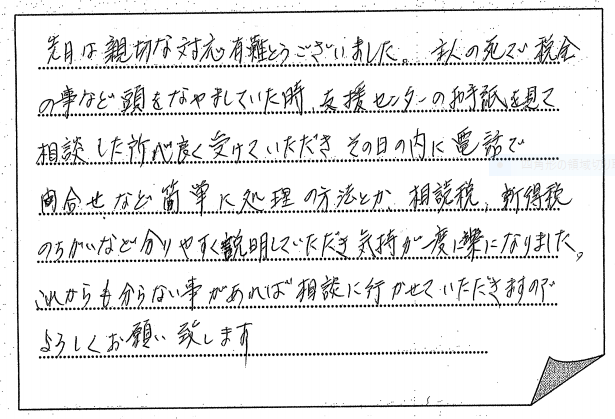 先日は親切な対応有難とうございました。主人の死で税金
の事など頭をなやましていた時、支援センターのお手紙を見て
相談した所心良く受けていただきその日の内に電話で
問合せなど簡単に処理の方法とか、相続税、所得税
のちがいなど分りやすく説明していただき気持が一度に楽になりました。
これからも分らない事があれば相談に行かせていただきますので
よろしくお願い致します